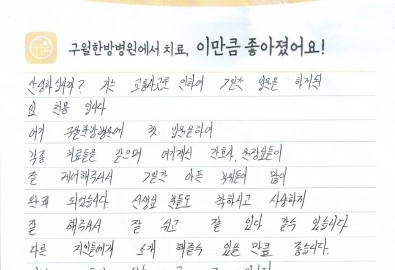 구월한방병원에서 치료, 이만큼 좋아졌어요!
안녕하세요? 저는 교통사고로 인하여 7일간 입원을 하게된
입니다
여기 구월한방병원에 첫 입원을하여
각종 치료들을 받으며 여기계신 간호사, 원장님들이
잘 케어해주셔서 7일간 아픈 부위들이 많이
완쾌 되었습니다. 선생님 분들도 착하시고 상냥하게
잘 해주셔서 잘 쉬고 잘 있다 갈수 있습니다
다른 지인들에게 소개 해줄수 있을 만큼 좋습니다.